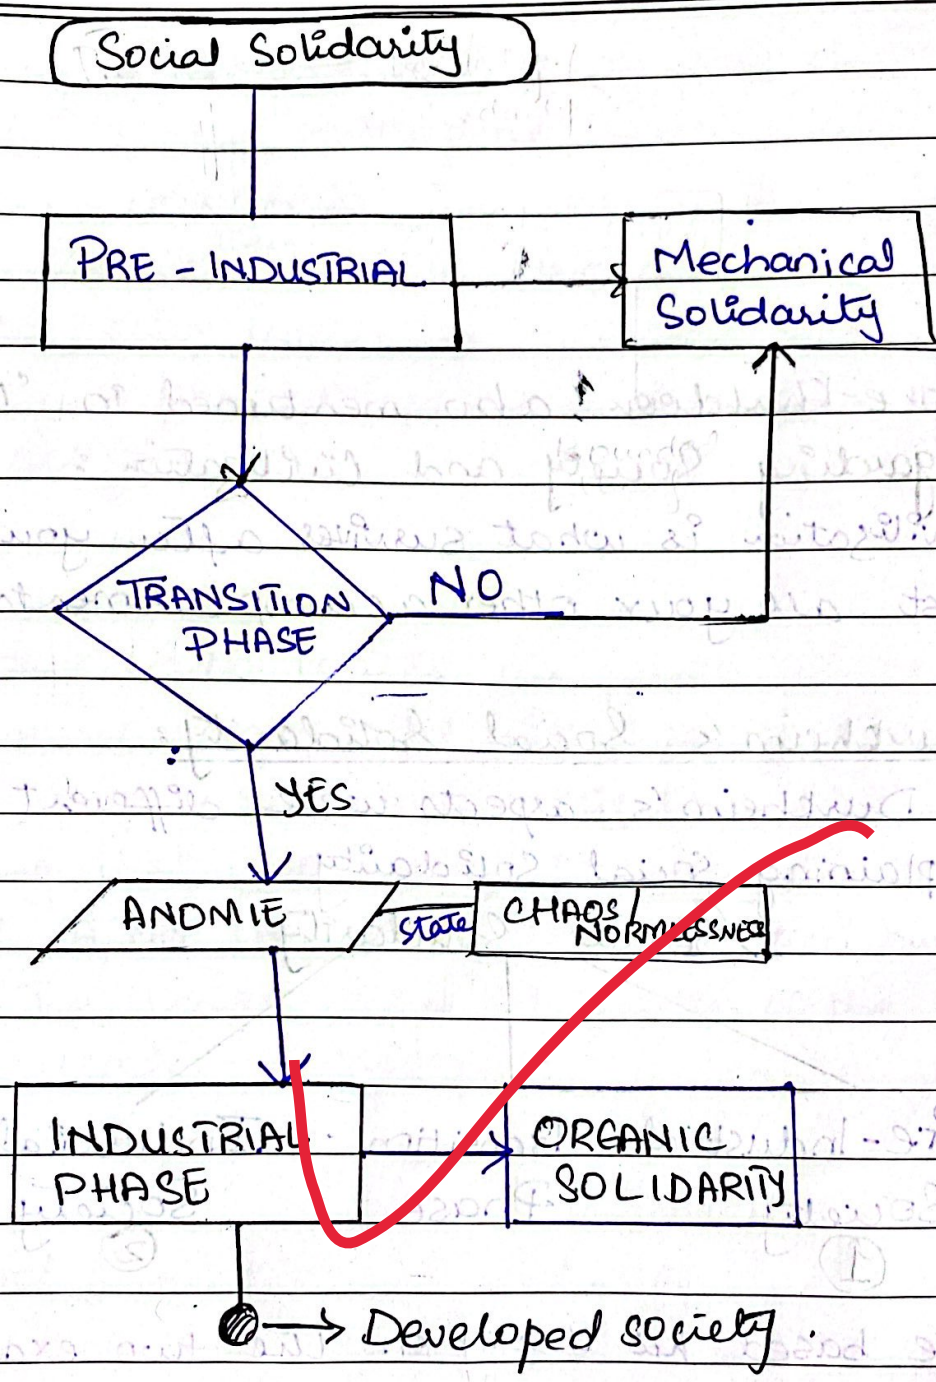 Social Solidarity
PRE - INDUSTRIAL
Mechanical
Solidarity
TRANSITION
PHASE
NO
YES
ANOMIE
State
CHAOS/
NORMLESSNESS
INDUSTRIAL
PHASE
ORGANIC
SOLIDARITY
Developed society.